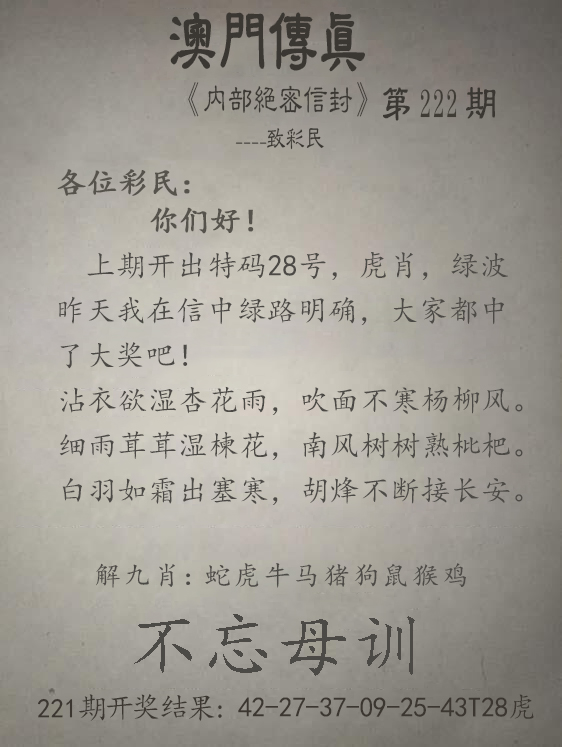 澳門傳眞
《内部絕密信封》第222期
----致彩民
各位彩民：
你们好！
上期开出特码28号，虎肖，绿波
昨天我在信中绿路明确，大家都中
了大奖吧！
沾衣欲湿杏花雨，吹面不寒杨柳风。
细雨茸茸湿楝花，南风树树熟枇杷。
白羽如霜出塞寒，胡烽不断接长安。
解九肖：蛇虎牛马猪狗鼠猴鸡
不忘母训
221期开奖结果：42-27-37-09-25-43T28虎